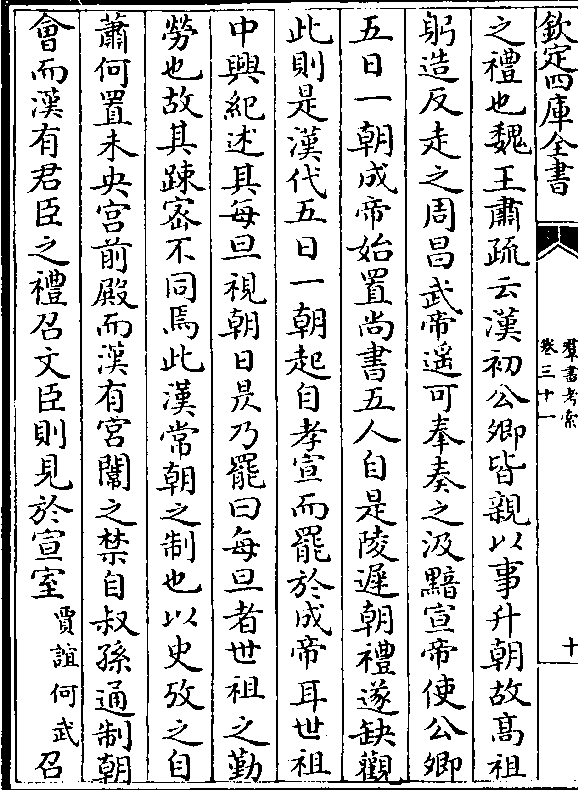 欽定四庫全書
羣書考索
卷三十一
十
之禮也魏王肅疏云漢初公卿皆親以事升朝故髙祖
躬造反走之周昌武帝遥可奉奏之汲黯宣帝使公卿
五日一朝成帝始置尚書五人自是陵遲朝禮遂缺觀
此則是漢代五日一朝起自孝宣而罷於成帝耳世祖
中興紀述其每旦視朝日昃乃罷曰每旦者世祖之勤
勞也故其踈宻不同焉此漢常朝之制也以史攷之自
蕭何置未央宫前殿而漢有宮闈之禁自叔孫通制朝
會而漢有君臣之禮召文臣則見於宣室賈誼何武召